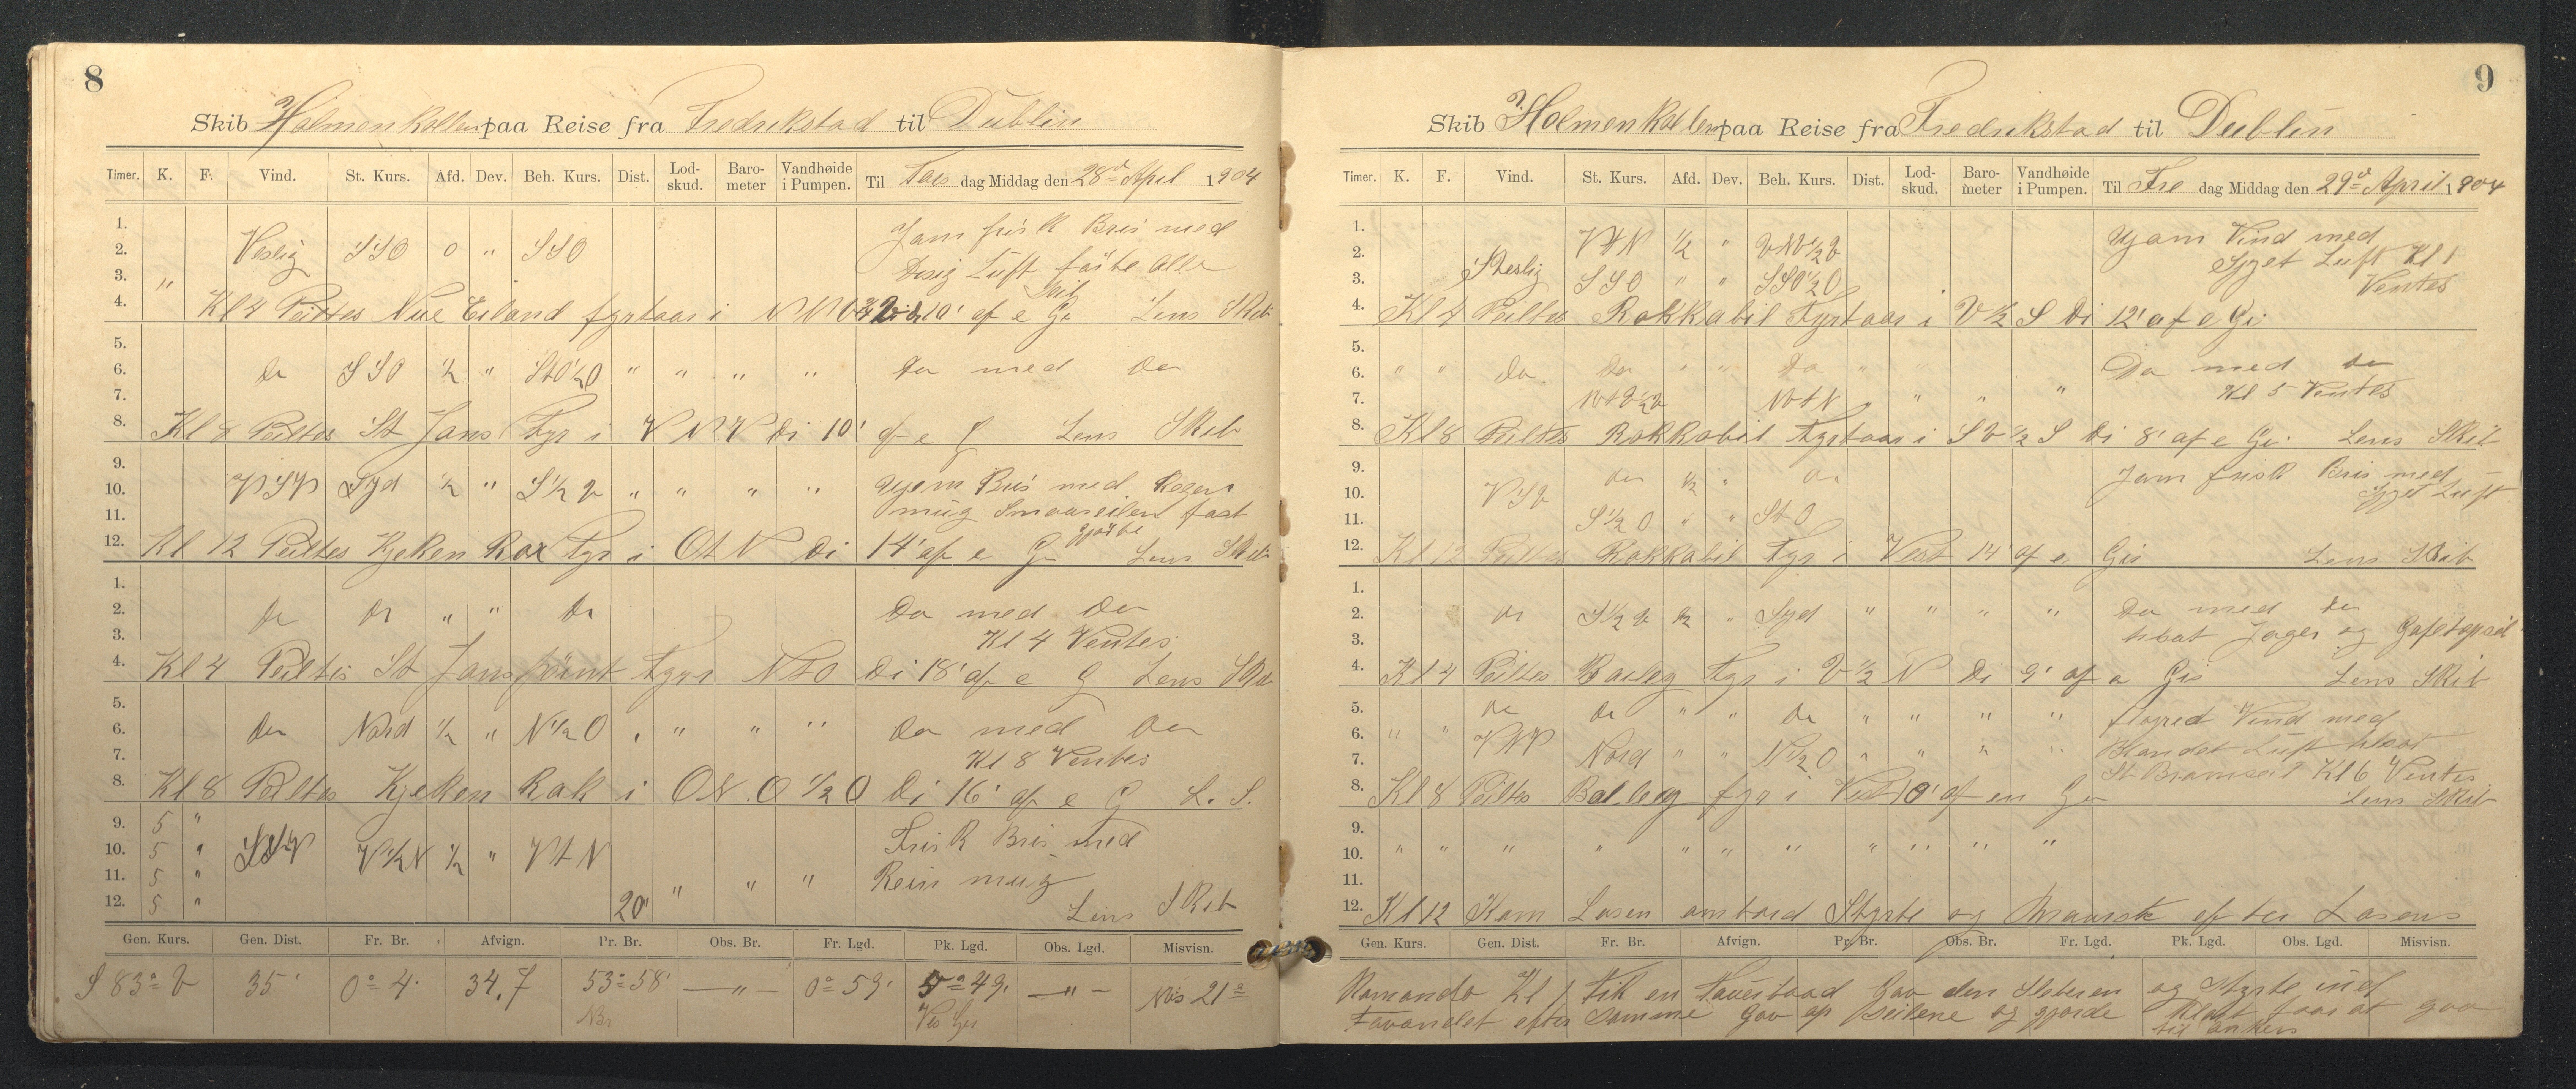 8
Skib Holmenkollen paa Reise fra Fredrikstad til Dublin
Timer. K. F. Vind. St. Kurs. Afd. Dev. Beh. Kurs. Dist. Lod-skud. Baro-meter Vandhøide i Pumpen. Til Tors dag Middag den 28de April 1904
1. Jam frisk Bris med
2. Veslig SSO 0 " SSO
3. " Disig Luft føite Alle
Seil
4. Kl 4 Peiltes Eiland fyrtaarn i 10' af e Gi Lens Skib
5.
6. Do SSO ½ " " " " " Do med Do
7.
8. Kl 8 Peiltes St Jans Fyr i V N V Di 10' af e G Lens Skib
9.
10. VSV Syd ½ " S ½ V " " " " Ujevn Bris med Regen
11. mug Smaaseilene fast
gjorte
12. Kl 12 Peiltes Kjeken Rox Fyr i O t N Di 14' af e G Lens Skib
1.
2. Do Do " " Do Do med Do
3. Kl 4 Ventes
4. Kl 4 Peiltes St Jans point Fyr i N t O Di 18' af e G Lens Skib
5.
6. Do Nord ½ " N ½ O " " " " Do med Do
7. Kl 8 Ventes
8. Kl 8 Peiltes Kjeken Rok i O N . O ½ O Di 16' af e G L. S.
9. 5 " Frisk Bris med
10. 5 " V ½ N ½ " V t N
11. 5 " " " " Rein mug
12. 5 " 20' Lens Skib
Gen. Kurs. Gen. Dist. Fr. Br. Afvign. Pr. Br. Obs. Br. Fr. Lgd. Pk. Lgd. Obs. Lgd. Misvisn.
S 83° V 35' 0° 4' 34,7 53° 58' — " — 0° 59' 5° 49' — " — Mis 21°
Nbr Ves Gr
9
Skib Holmenkollen paa Reise fra Fredrikstad til Dublin
Timer. K. F. Vind. St. Kurs. Afd. Dev. Beh. Kurs. Dist. Lod-skud. Baro-meter Vandhøide i Pumpen. Til Fre dag Middag den 29de April 1904
1. Ujam Vind med
2. V t N ½ " Sjyet Luft Kl 1
3. SSO " " SSO ½ O Ventes
4. Kl 4 Peiltes Rokkabil Fyrtaarn i V ½ S Di 12' af e Gi
5.
6. " " Do Do " " Do " " Do med Do
7. N t N " " " Kl 5 Ventes
8. Kl 8 Peiltes Rokkabil Fyrtaarn i S V ½ S Di 8' af e Gi Lens Skib
9. Do ½ " Do Jam frisk Bris med
10. VSV Sjyet Luft
11. S ½ O " " S t O
12. Kl 12 Peiltes Rokkabil Fyr i Vest 14' af e Gis Lens Skib
1.
2. Do S ½ V ½ " Syd " " " " Do med Do
3. tilsat Jager og Gafeltopseil
4. Kl 4 Peiltes Bailey Fyr i V ½ N Di 9' af e Gis Lens Skib
5. Do Do " " Do " " " " Vind med
6. " " V t N Blandet Luft tilsat
7. Nord " " N ½ O " " " " St Bramseil Kl 6 Ventes
8. Kl 8 Peiltes Bailey fyr i Vest 10' af en Gis Lens Skib
9.
10. " " " " " " " " " " "
11.
12. Kl 12 Kom Losen ombord Styrte og efter Losens
Gen. Kurs. Gen. Dist. Fr. Br. Afvign. Pr. Br. Obs. Br. Fr. Lgd. Pk. Lgd. Obs. Lgd. Misvisn.
Komando Kl 1 Fik en Tauerbaad Gav den Sleberen og Styrte ind
Favandet efter Samme Gav op Seilene og gjorde Klart for at gaa
til Ankers